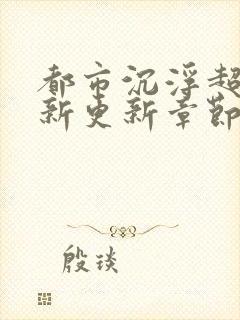 都市沉浮超
新更新章節
殷琰